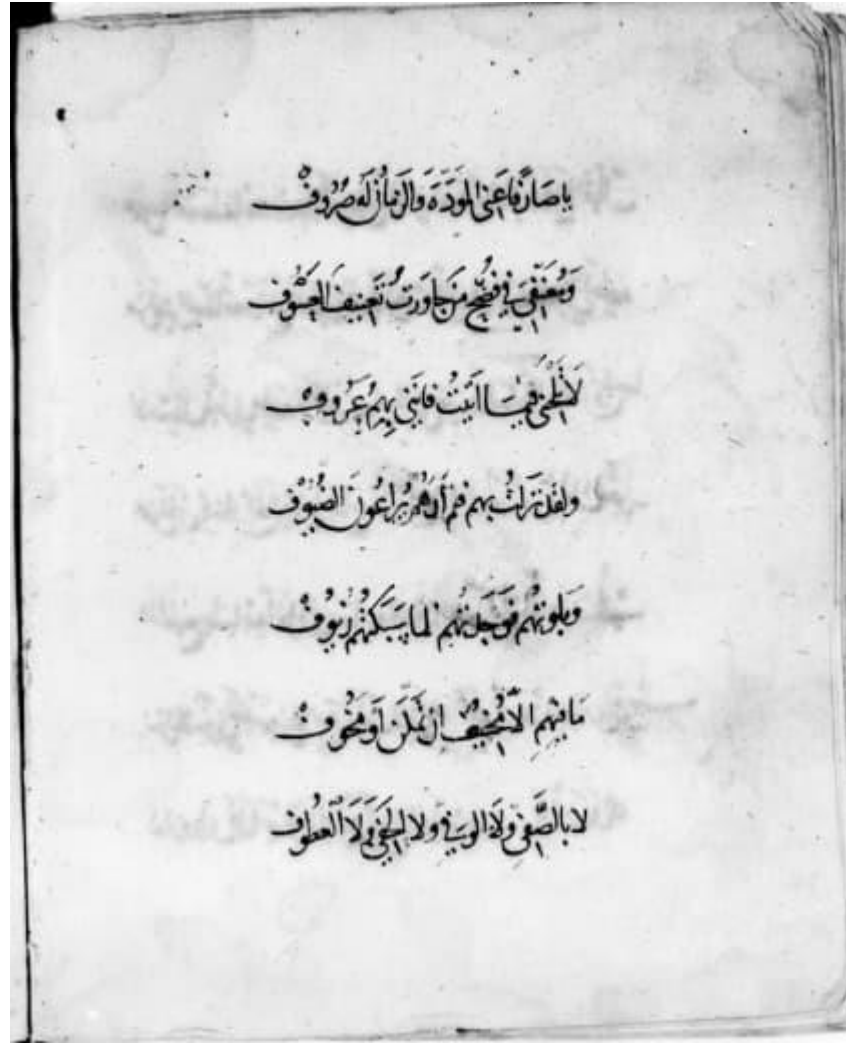 يا صَارِفًا عَنّى المودّةَ وَالزمَانُ لَه صُرُوفْ
وَمُعَنّفِى فِى فَضحِ مَن جاوَرتُ تَعنِيفَ العَسُوف
لَا تَلحَنِى فِيمَا اتَيتُ فَاِنَّنِى بِهِمُ عَرُوف
ولقد نزلتُ بهم فلم أرَهُم يُراعُونَ الضُيُوفْ
وَبلوتهُم فوَجَدتهُم لما سَبَكتُهُم زُيُوفْ
مَا فِيهِم الّا مُخِيفٌ اِن تمَكّنَ اَو مَخُوفْ
لا بالصَّفِىّ ولَا الوَفِىّ ولا الحَفِىّ وَلَا العَطُوف